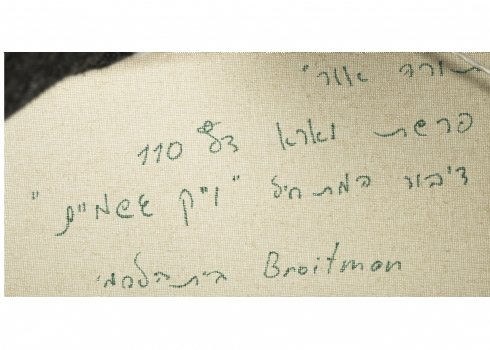 תורה אור
פרשת וארא דף 110
דיבור המתחיל
Broitman בית הלחמי